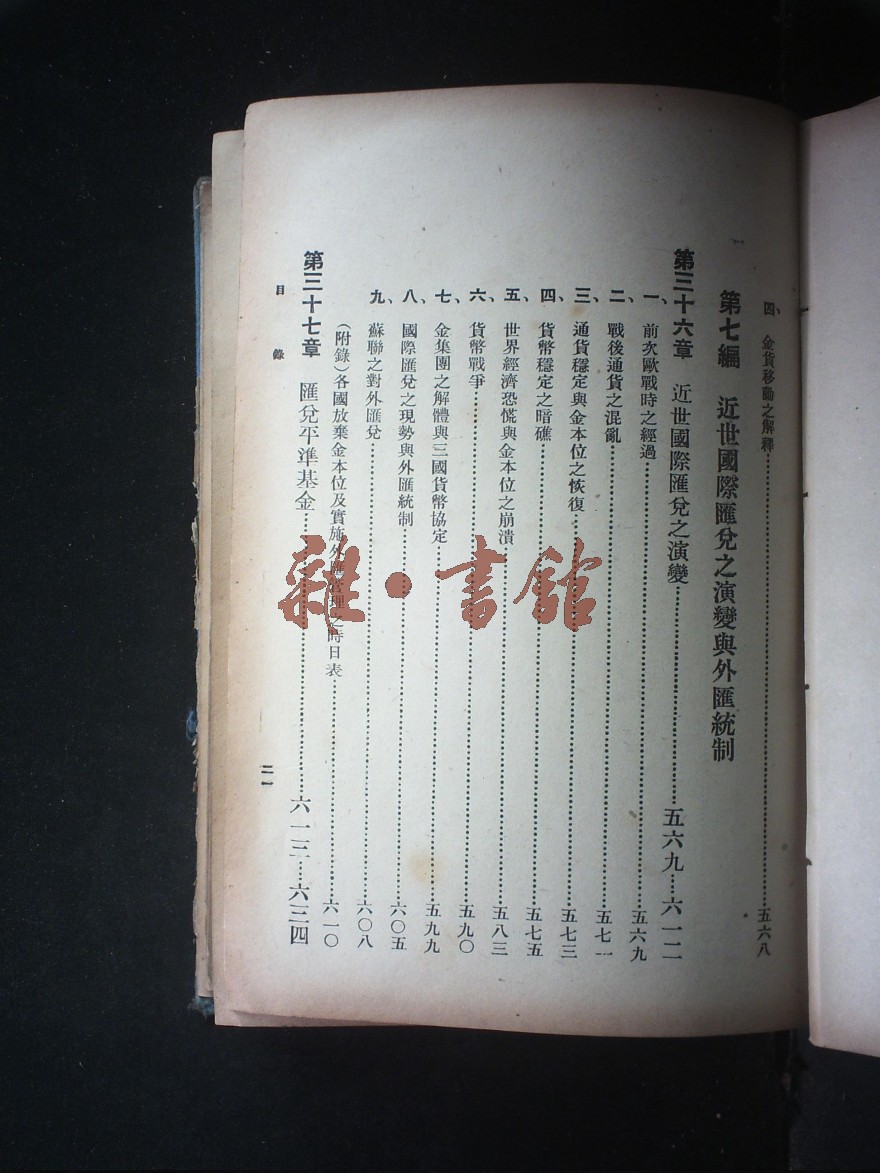 四、金貨移動之解釋……五六八
第七編　近世國際匯兌之演變與外匯統制
第三十六章　近世國際匯兌之演變……五六九……六一二
一、前次歐戰時之經過……五六九
二、戰後通貨之混亂……五七一
三、通貨穩定與金本位之恢復……五七三
四、貨幣穩定之暗礁……五七五
五、世界經濟恐慌與金本位之崩潰……五八三
六、貨幣戰爭……五九〇
七、金集團之解體與三國貨幣協定……五九九
八、國際匯兌之現勢與外匯統制……六〇五
九、蘇聯之對外匯兌……六〇八
（附錄）各國放棄金本位及實施外匯管理之時日表……六一〇
第三十七章　匯兌平準基金……六一三……六三四
目錄
二一
雜・書館